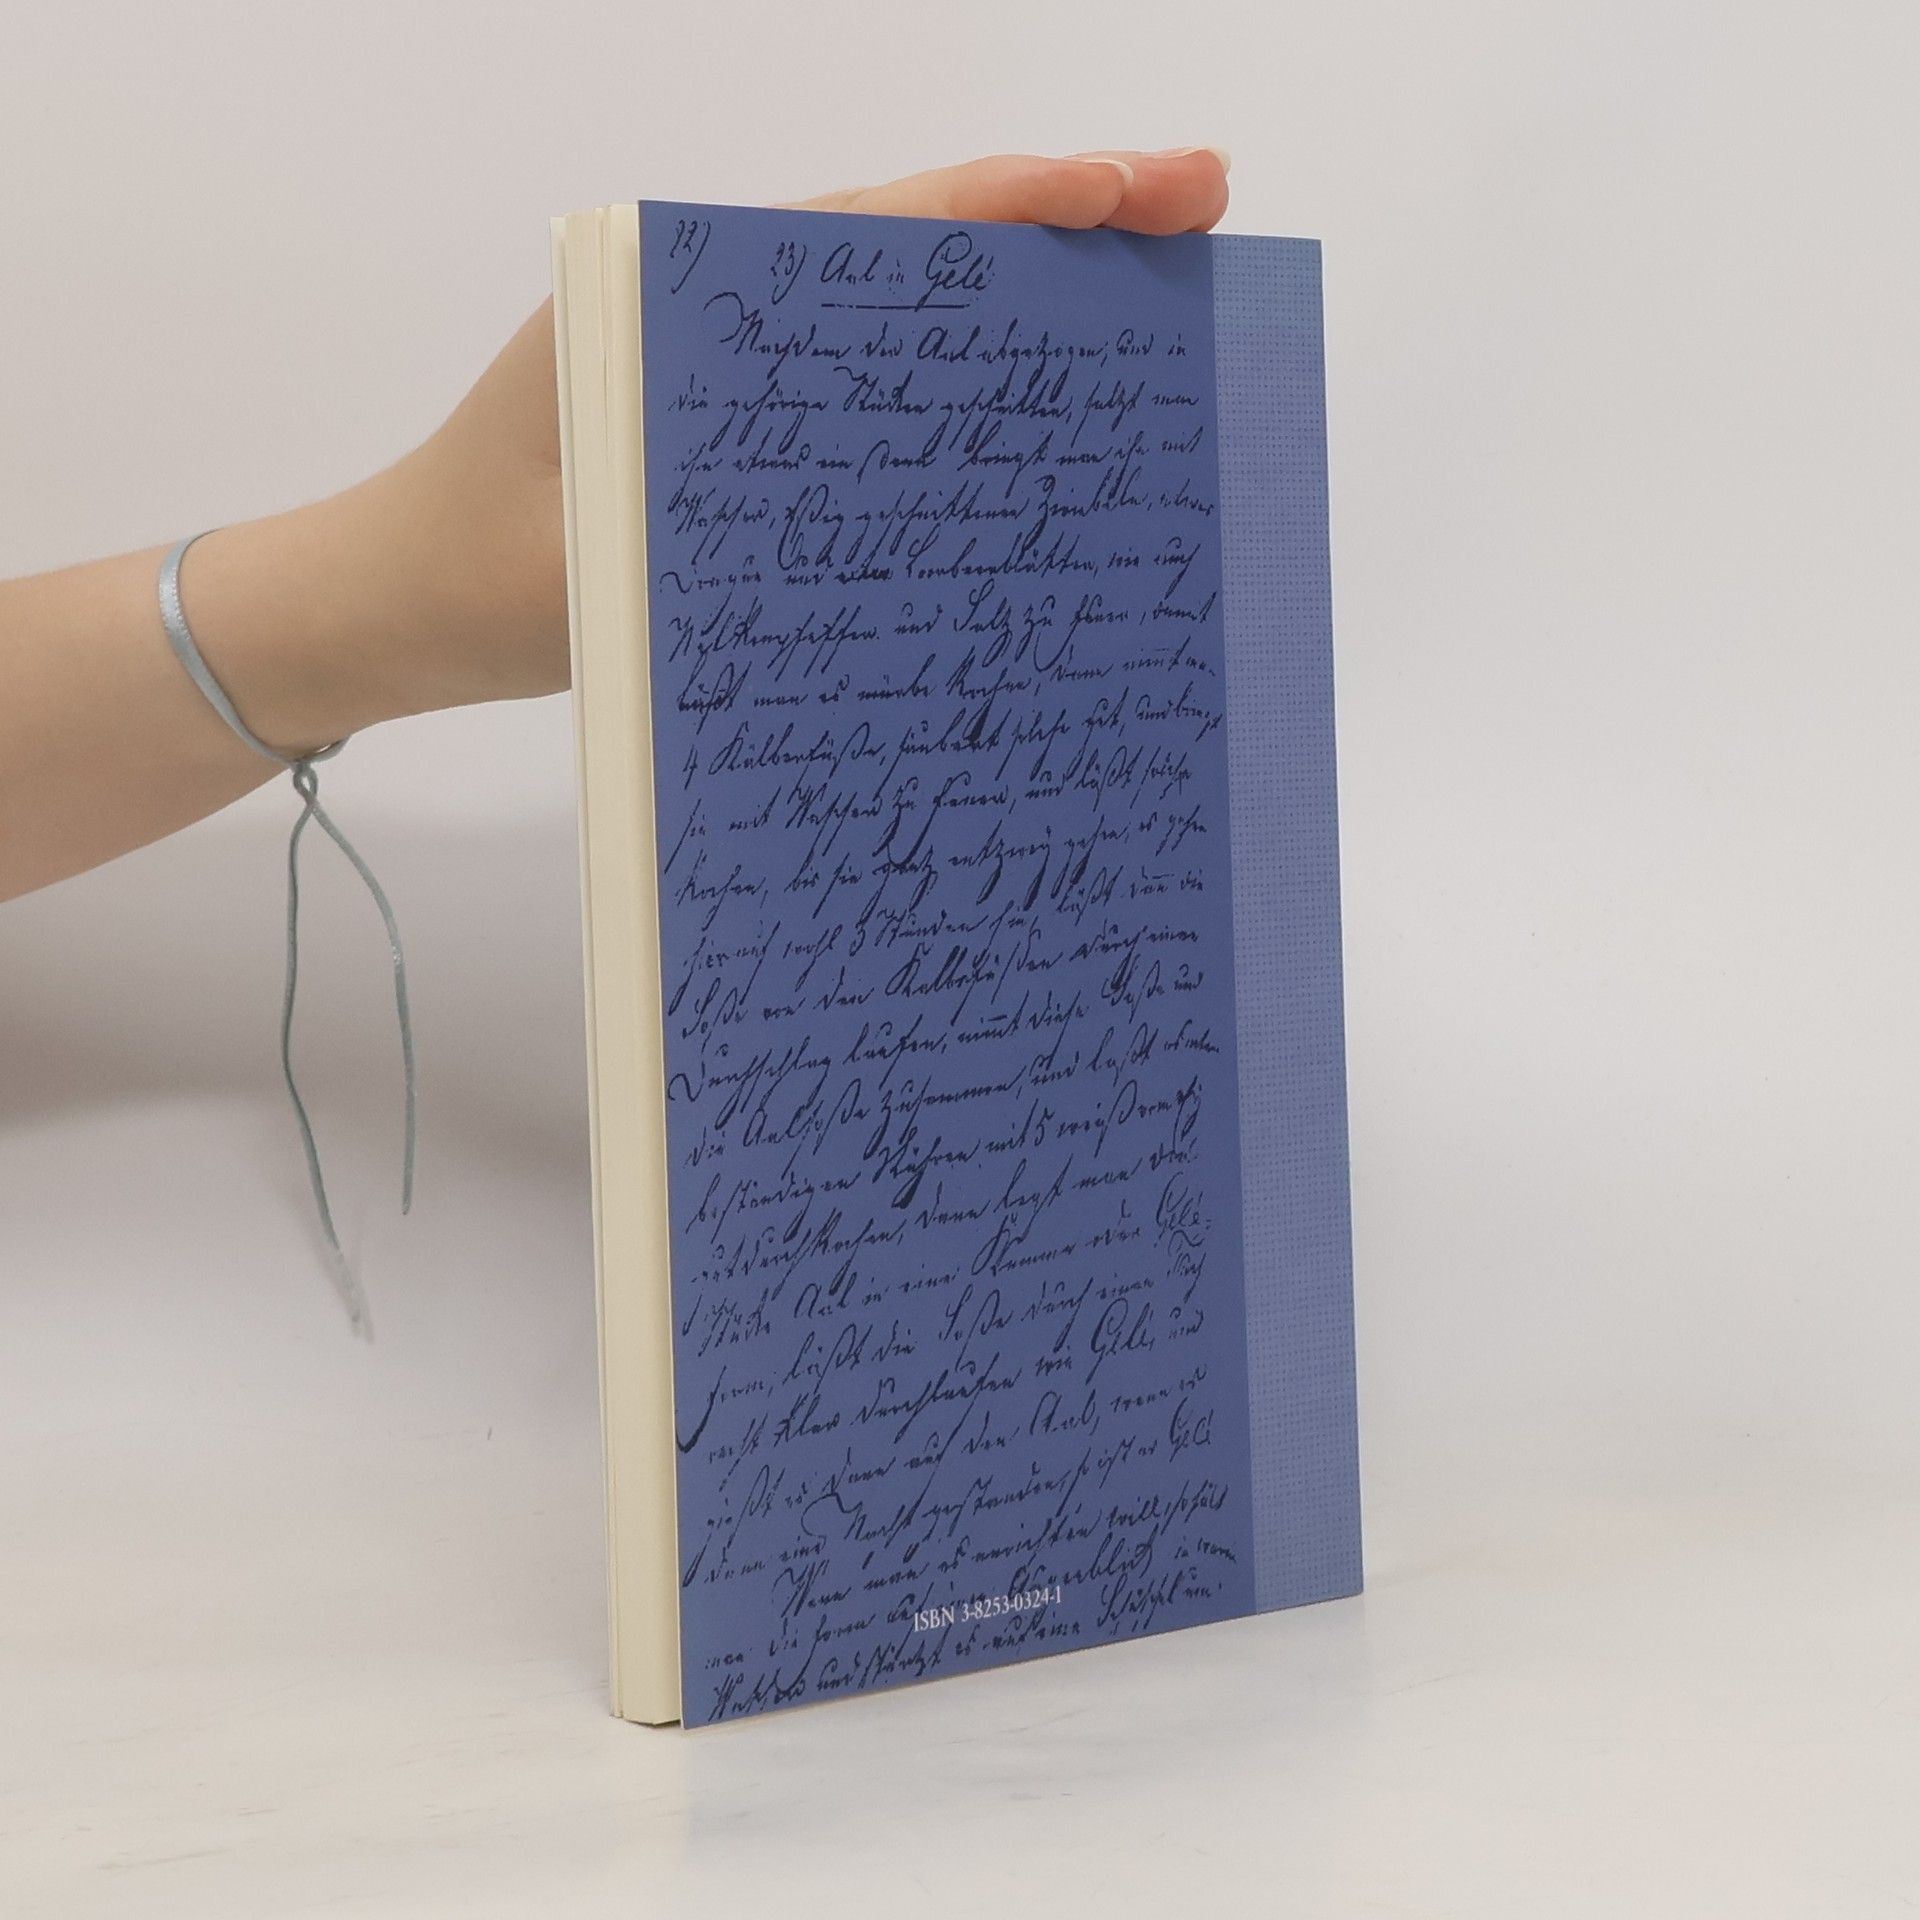 22)
23) Aal in Gelé
Nachdem der Aal abgezogen, und in
die gehörige Stücken geschnitten, salzt man
ihn etwas ein dann bringt man ihn mit
Wasser, Eßig geschnittenen Zwiebeln, etwas
und Loorbeerblätter, wie auch
Nelkenpfeffer und Salz zu Feuer, damit
läßt man es mürbe Kochen, dann nimmt man
4 Kälberfüße, säubert solche gut, und bringt
sie mit Wasser zu Feuer, und läßt solche
Kochen, bis sie ganz entzwey gehen, es gehen
hierauf wohl 3 Stunden hin, läßt dann die
Soße von den Kalbsfüßen durch einen
Durchschlag laufen, nimmt diese Soße und
die Aalsoße zusammen, und läßt es unter
beständigen Rühren mit 5 weiß vom Ey
gut durchKochen, dann legt man die
Stücke Aal in eine Kumme oder Gelé-
form, läßt die Soße durch einen
recht Klar durchlaufen wie Gelé, und
gießt es dann auf den Aal, wenn es
dann eine Nacht gestanden, so ist es Gelé
Wenn man es anrichten will, so hält
man die Form auf einen Augenblick in warm
Wasser und stürzt es auf eine Schüssel um.
ISBN 3-8253-0324-1